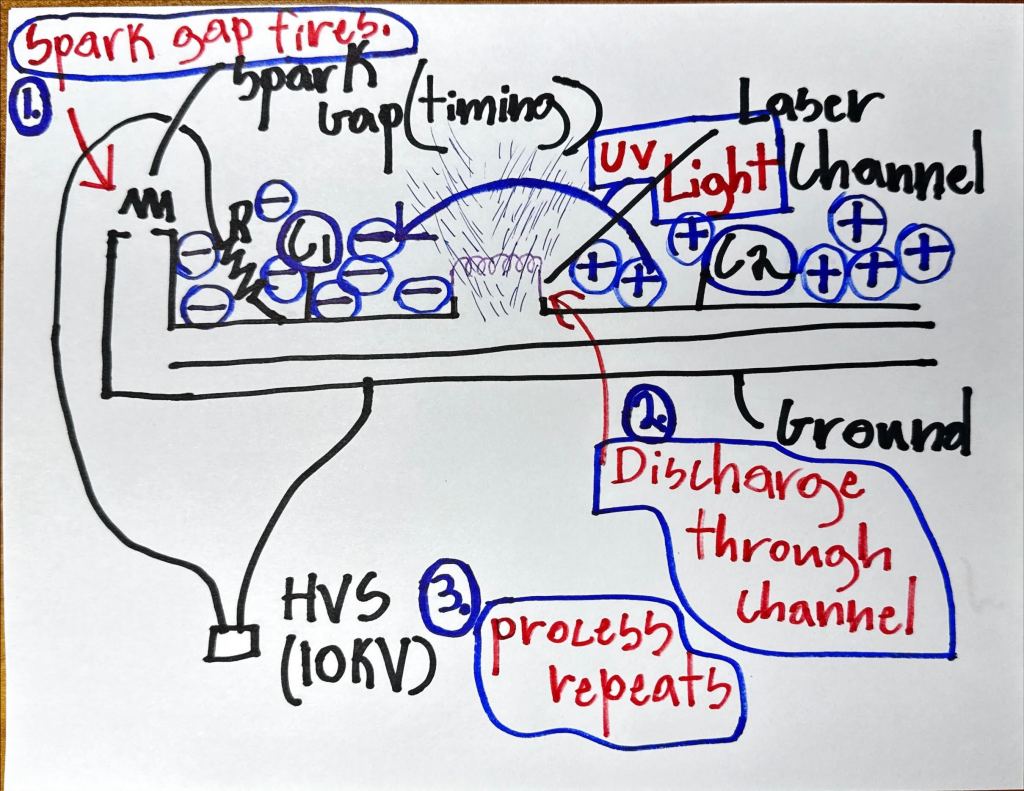 Spark gap fires.
1.
Spark
Gap (timing)
Laser
Channel
UV
Light
R
C1
C2
Ground
2.
Discharge
through
channel
HVS
(10KV)
3.
process
repeats